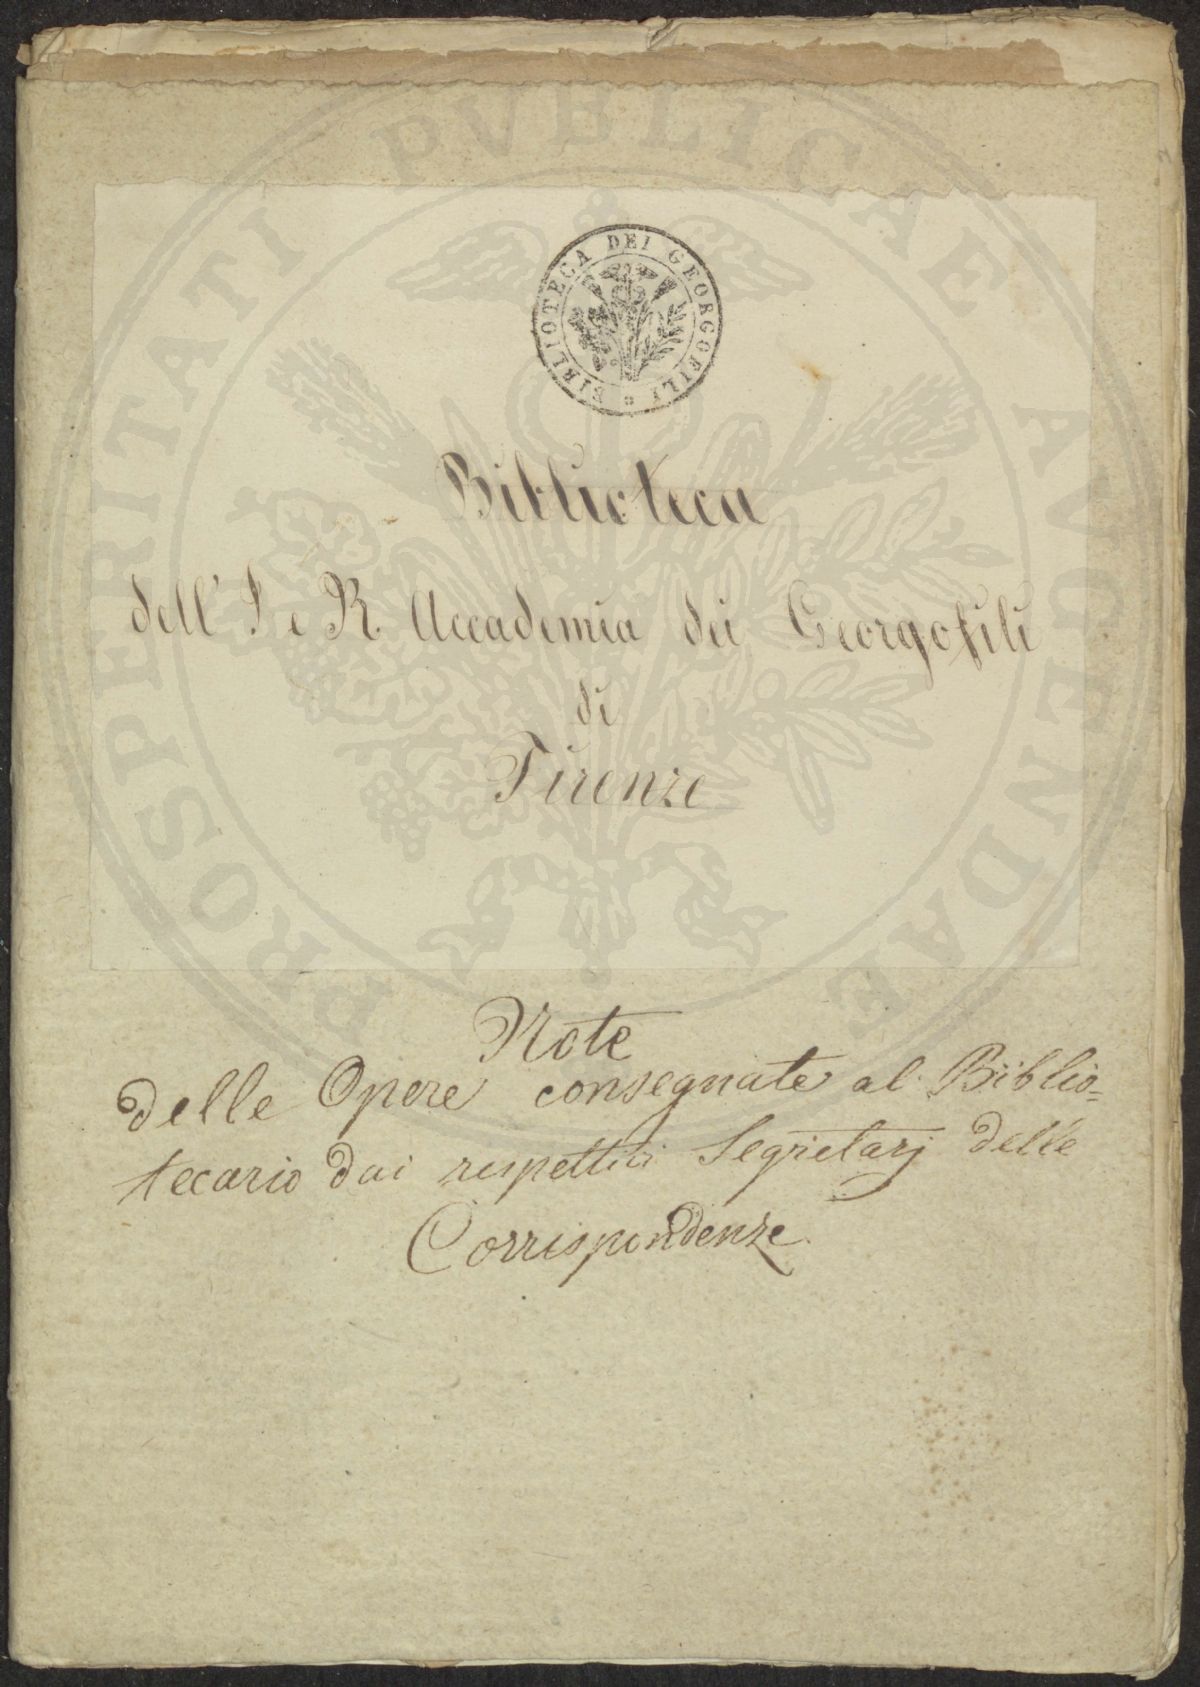 BIBLIOTECA DEI GEORGOFILI
Biblioteca
dell' I e R. Accademia dei Georgofili
di
Firenze
Note
delle Opere consegnate al Biblio=
tecario dai respettivi Segretarj delle
Corrispondenze.
PROSPERITATI PVBLICAE AVGENDAE